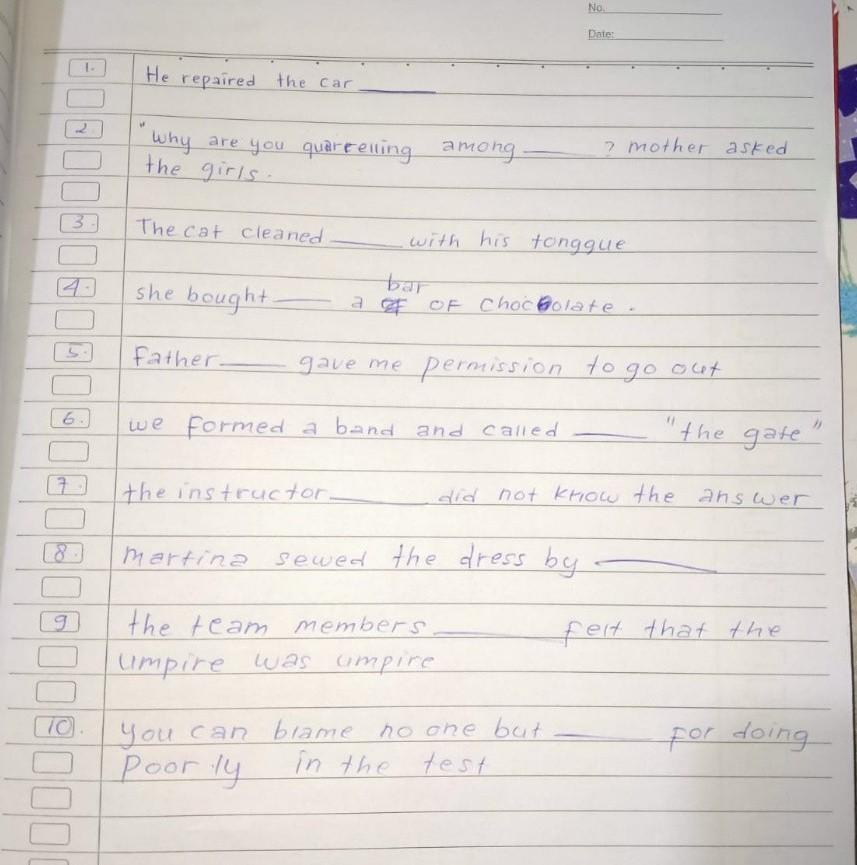 No.
Date:
1. He repaired the car ____
2. "Why are you quarrelling among ____ ? mother asked
the girls.
3. The cat cleaned ____ with his tonggue
bar
4. she bought ____ a of chocolate.
5. Father ____ gave me permission to go out
6. we formed a band and called ____ "the gate"
7. the instructor ____ did not know the answer
8. martina sewed the dress by ____
9 the team members ____ felt that the
umpire was umpire
10. you can blame no one but ____ for doing
poorly in the test